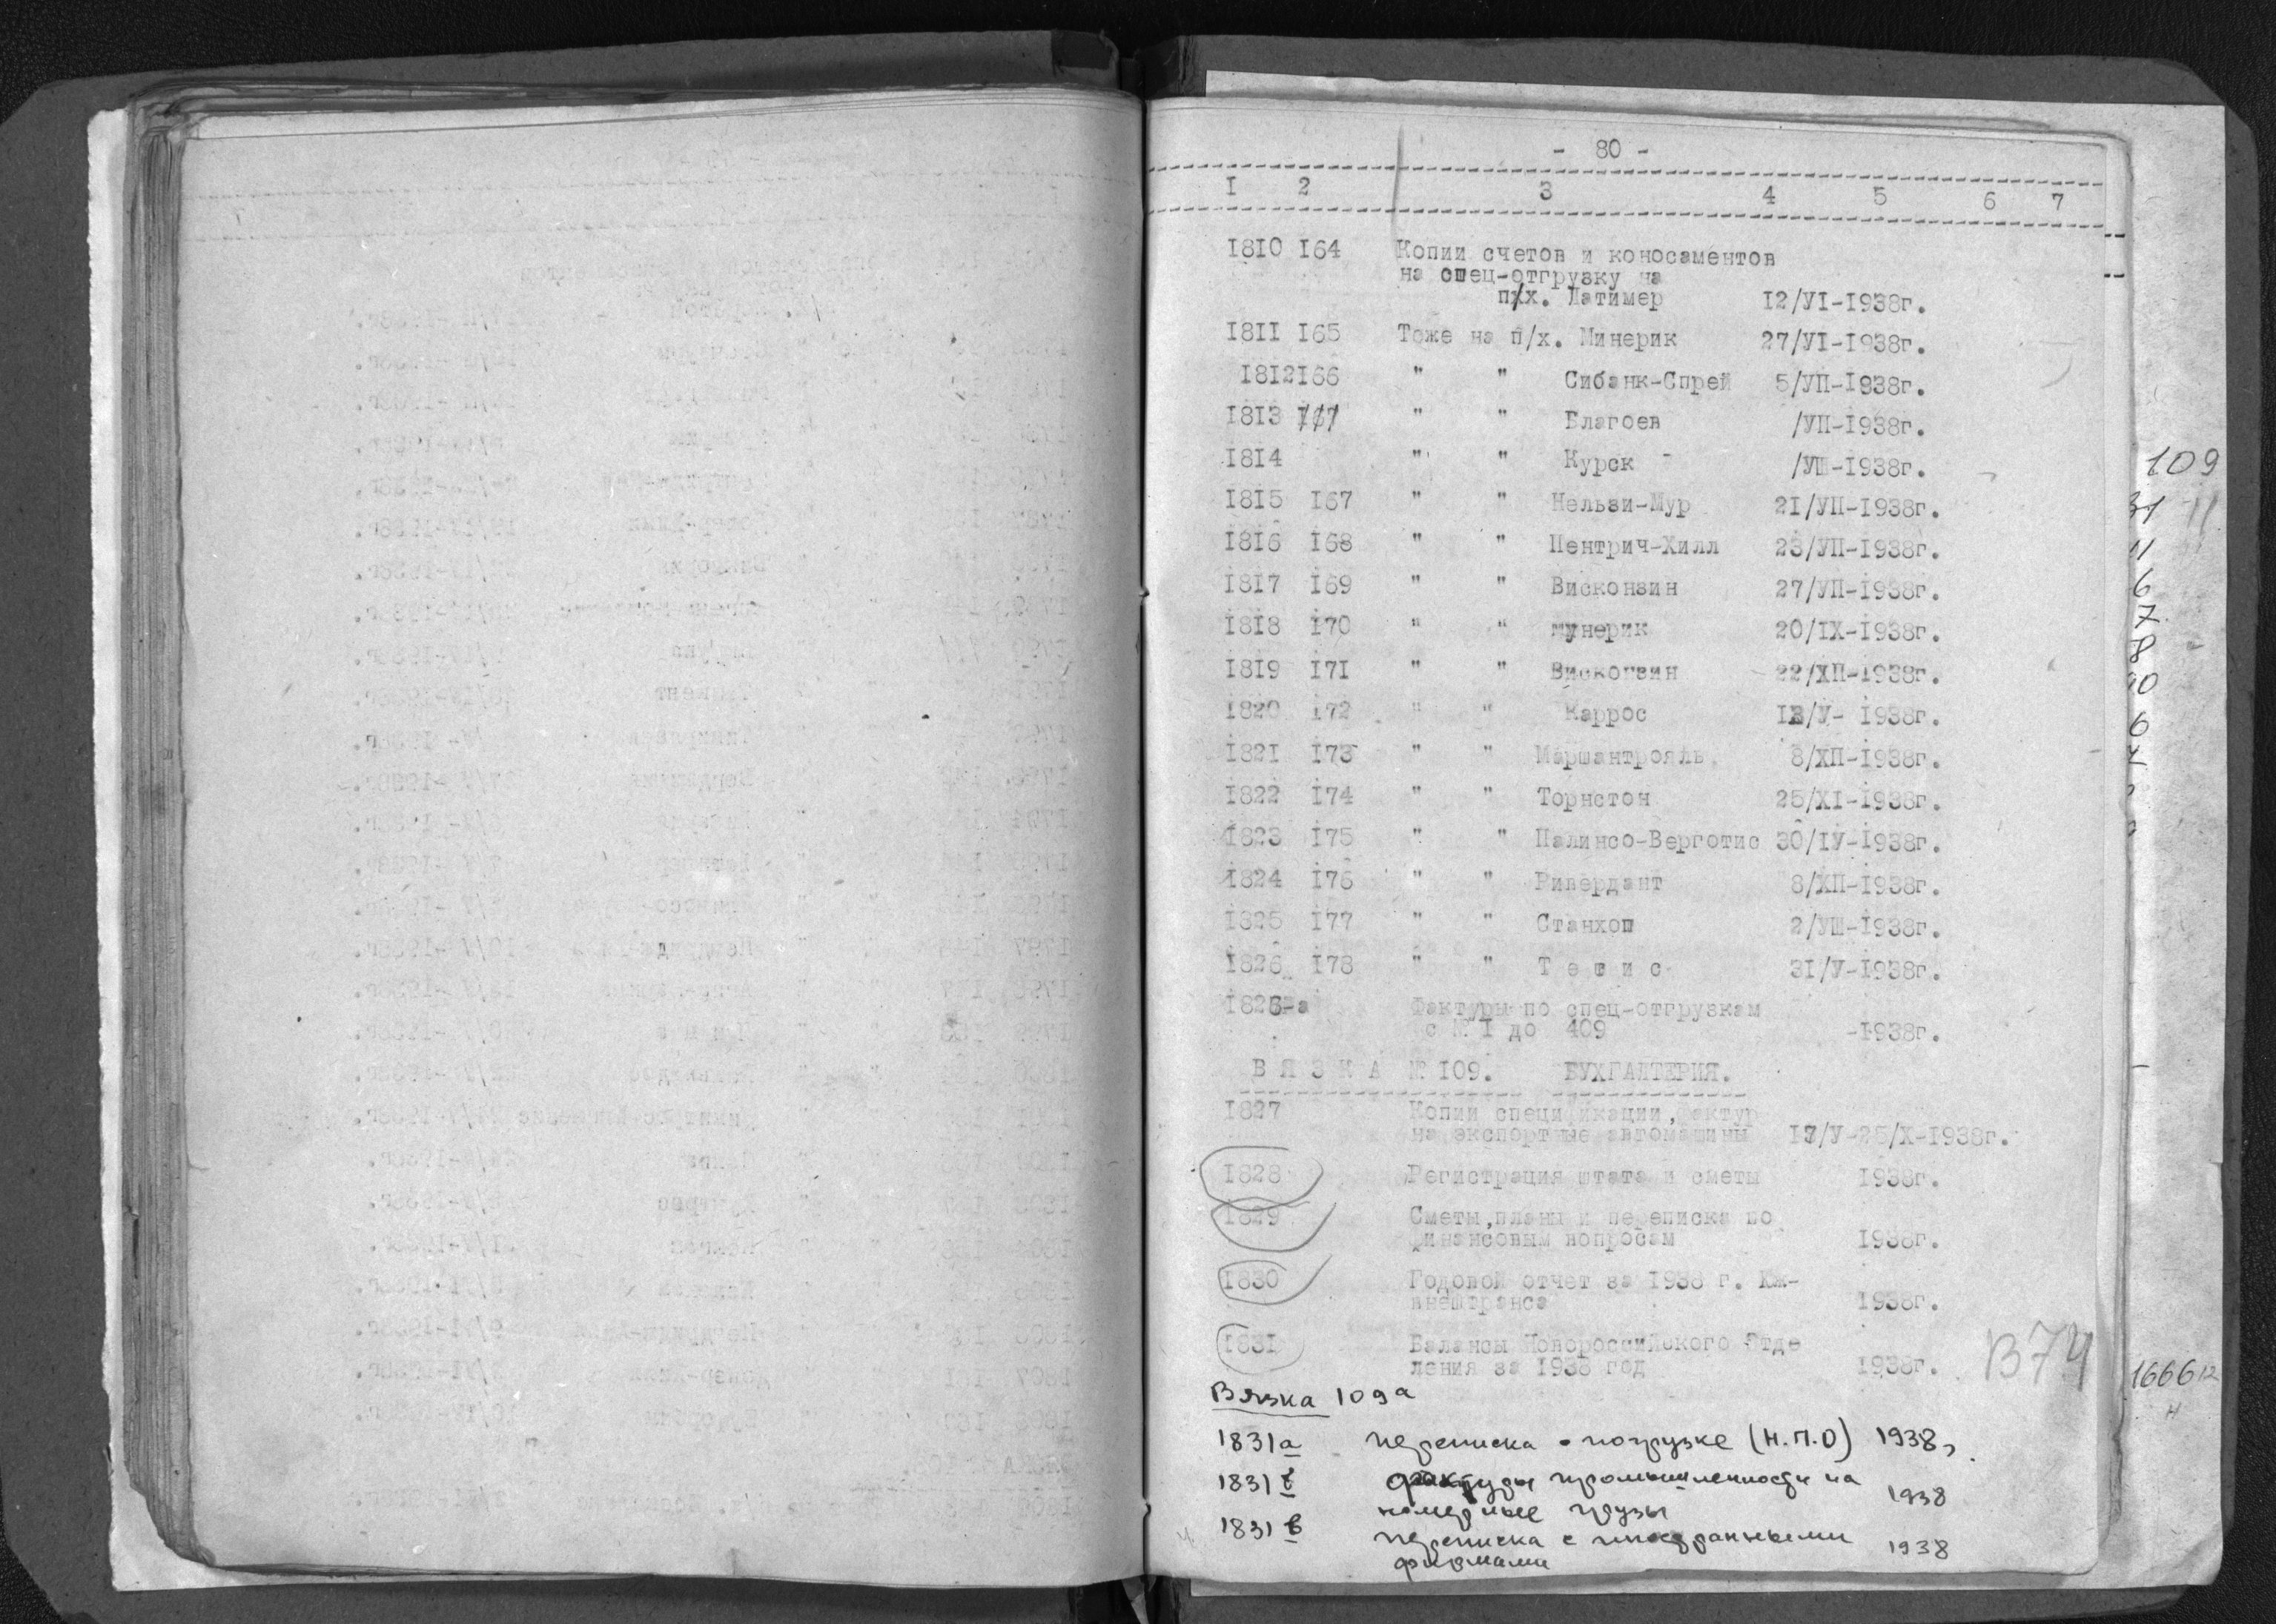 - 80 -
1 2 3 4 5 6 7
1810 164 Копии счетов и коносаментов
на спец-отгрузку на
п/х. Латимер 12/УI-1938г.
1811 165 Тоже на п/х. Минерик 27/УI-1938г.
1812 166 " " Сибанк-Спрей 5/УП-1938г.
1813 167 " " Благоев /УП-1938г.
1814 " " Курск /УШ-1938г.
1815 167 " " Нельзи-Мур 21/УП-1938г.
1816 168 " " Пентрич-Хилл 23/УП-1938г.
1817 169 " " Висконзин 27/УП-1938г.
1818 170 " " мунерик 20/IX-1938г.
1819 171 " " Висконзин 22/ХП-1938г.
1820 172 " " Каррос 13/У- 1938г.
1821 173 " " Маршантрояль 8/ХП-1938г.
1822 174 " " Торнстон 25/ХI-1938г.
1823 175 " " Палинсо-Верготис 30/IУ-1938г.
1824 176 " " Ривердант 8/ХП-1938г.
1825 177 " " Станхоп 2/УШ-1938г.
1826 178 " " Т е т и с 31/У-1938г.
1826-а Фактуры по спец-отгрузкам
с № 1 до 409 -1938г.
В Я З К А № 109. БУХГАЛТЕРИЯ.
1827 Копии спецификации, фактур
на экспортные автомашины 17/У-25/Х-1938г.
1828 Регистрация штата и сметы 1938г.
1829 Сметы, планы и переписка по
финансовым вопросам 1938г.
1830 Годовой отчет за 1938 г. Юж-
внештранса 1938г.
1831 Балансы Новороссийского Отде
ления за 1938 год 1938г.
В74
Вязка 109а
1831а переписка о погрузке (Н.П.О) 1938г.
1831б фактуры промышленности на
номерные грузы 1938
1831в переписка с иностранными
фирмами 1938
109
31
11
6
7
8
16661